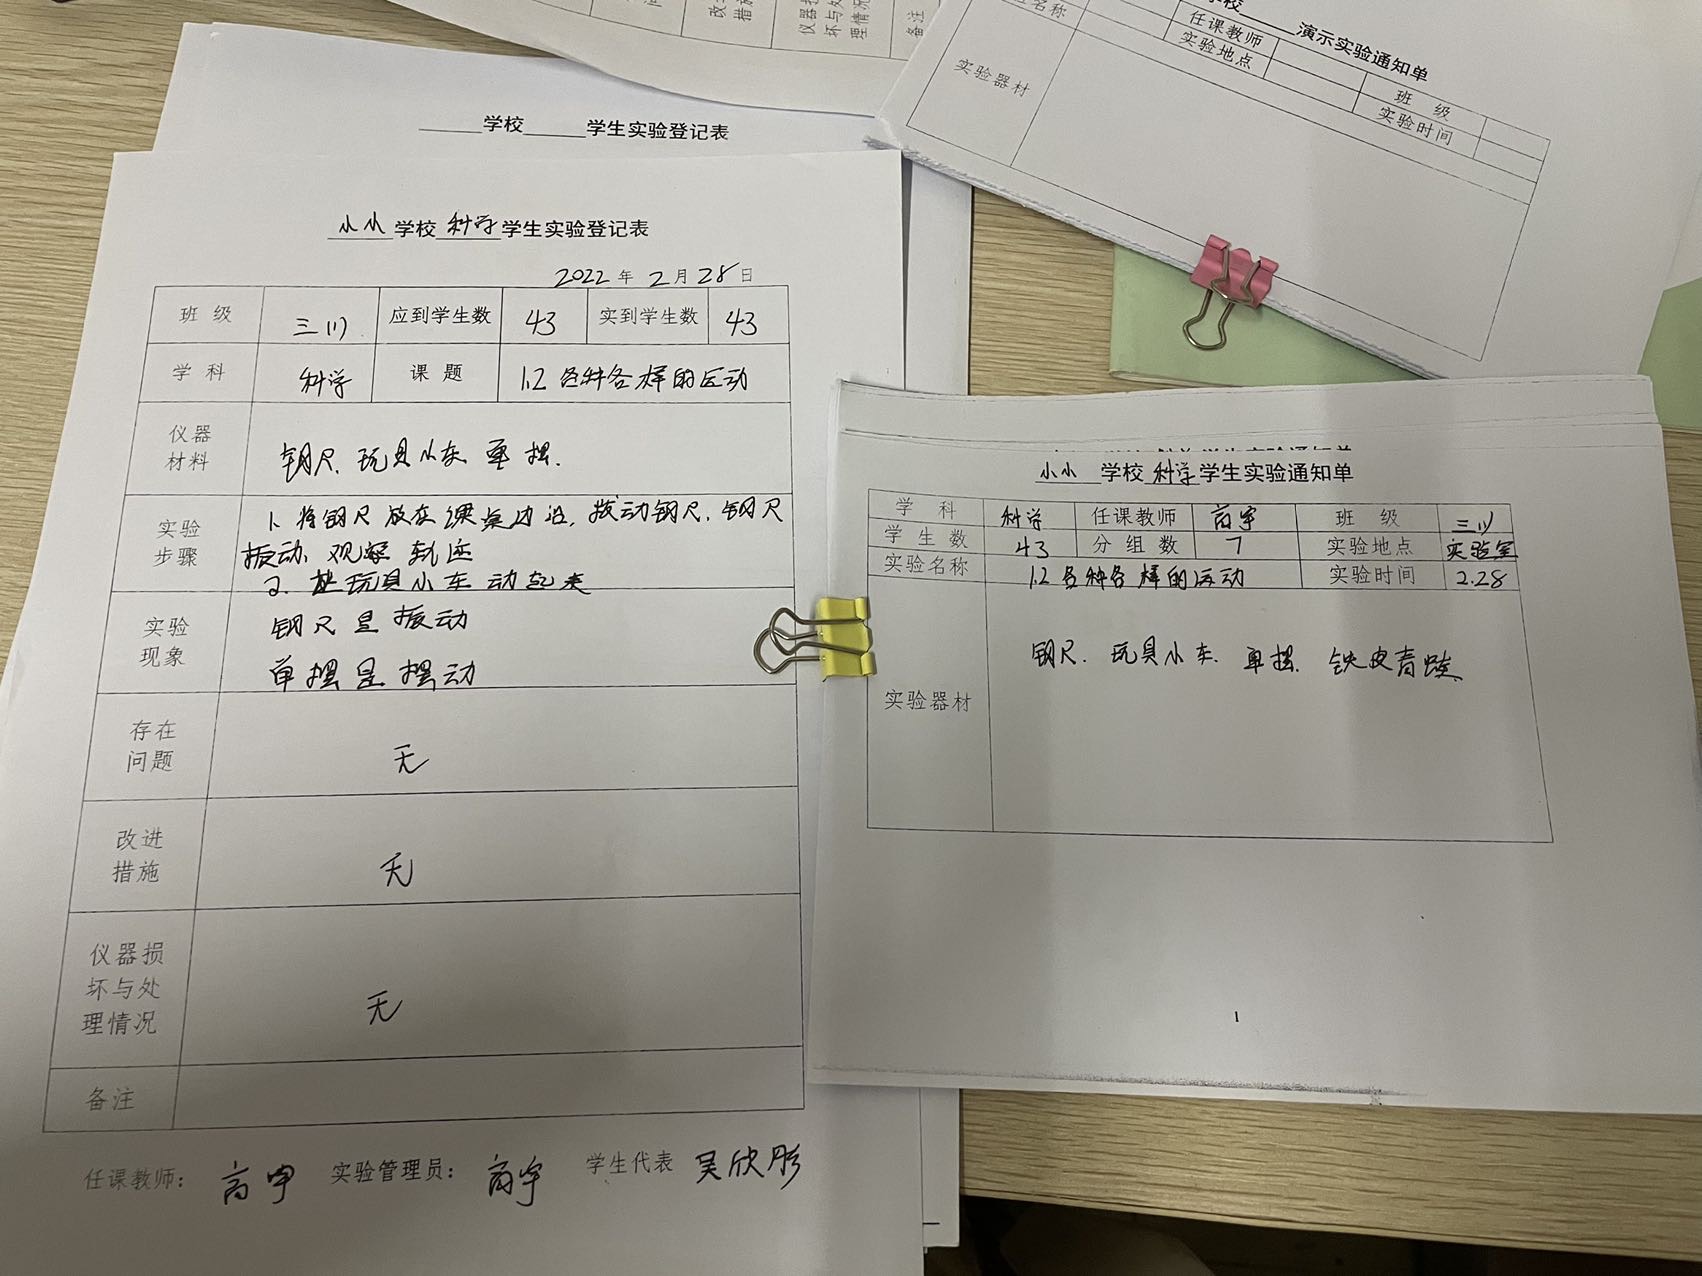 改进
措施
仪器损
坏与处
理情况
备注
学校 演示实验通知单
任课教师
班 级
实验地点
实验时间
实验器材
学校 学生实验登记表
小小 学校 科学 学生实验登记表
2022 年 2 月 28 日
班 级 三(1) 应到学生数 43 实到学生数 43
学 科 科学 课 题 1.2 各种各样的运动
仪器
材料
钢尺、玩具小车 单摆.
实验
步骤
1. 将钢尺放在课桌边沿,拨动钢尺,钢尺
振动、观察 轨迹
2. 让玩具小车动起来
实验
现象
钢尺是振动
单摆是摆动
存在
问题
无
改进
措施
无
仪器损
坏与处
理情况
无
备注
任课教师: 高宇 实验管理员: 高宇 学生代表 吴欣彤
小小 学校 科学 学生实验通知单
学 科 科学 任课教师 高宇 班 级 三(1)
学 生 数 43 分 组 数 7 实验地点 实验室
实验名称 1.2 各种各样的运动 实验时间 2.28
实验器材 钢尺、玩具小车、单摆、铁皮青蛙.
1